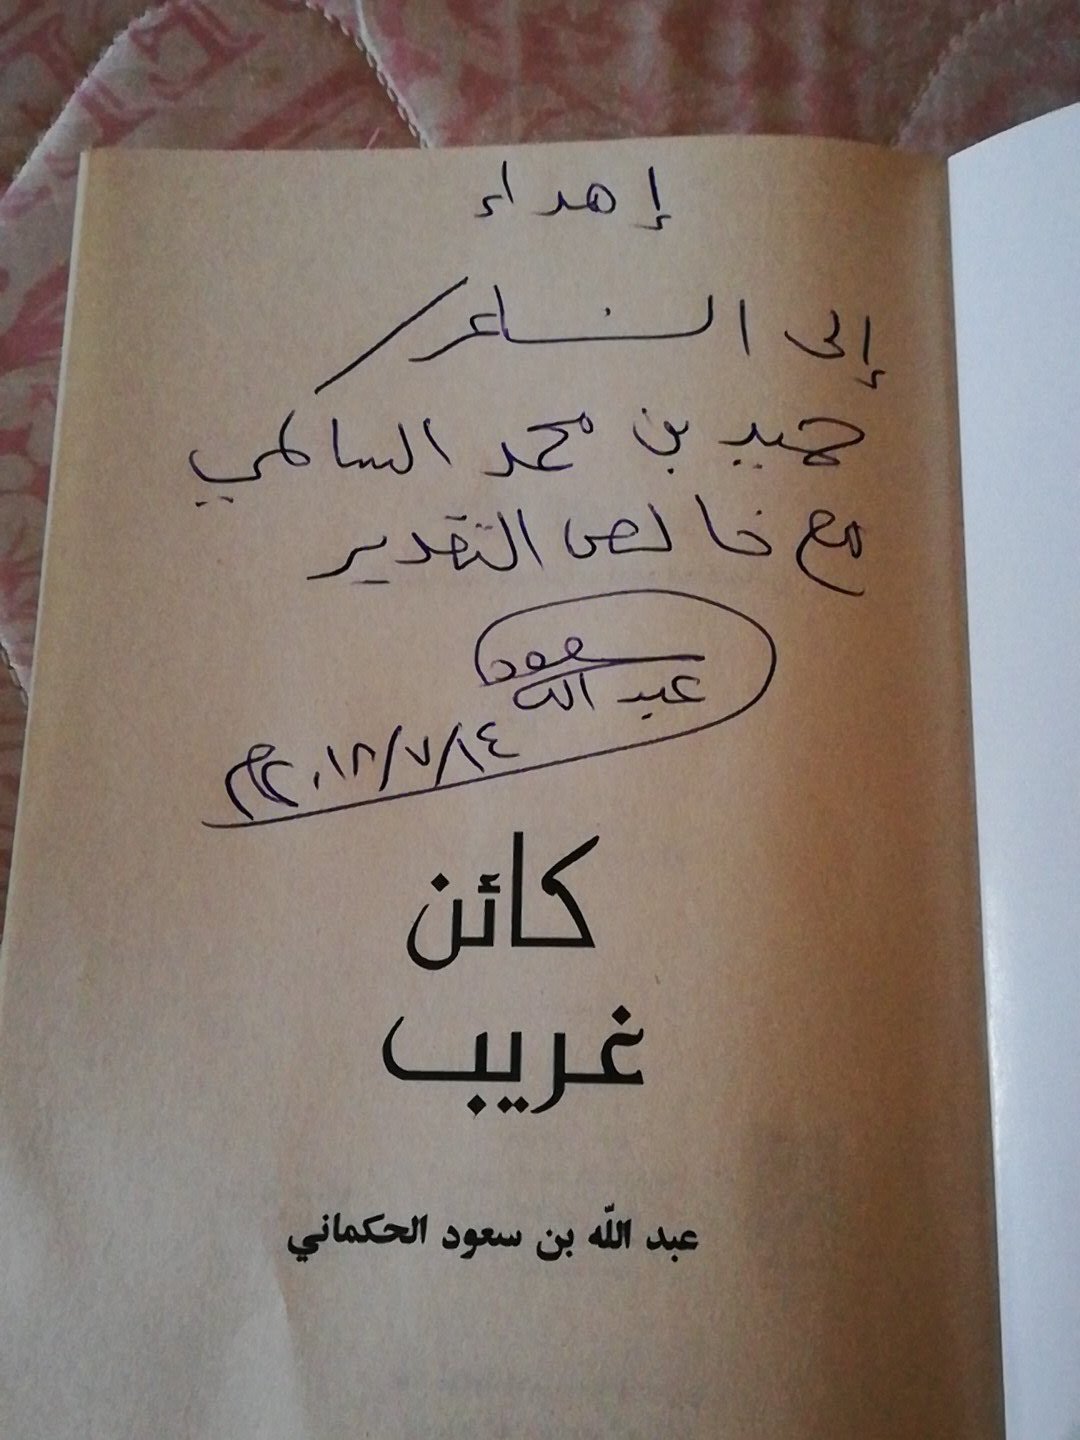 إهداء
إلى الشاعر/
حميد بن محمد السالمي
مع خالص التقدير
عبد الله سعود
١٤/٧/٢٠١٨م
كائن
غريب
عبد اللّه بن سعود الحكماني